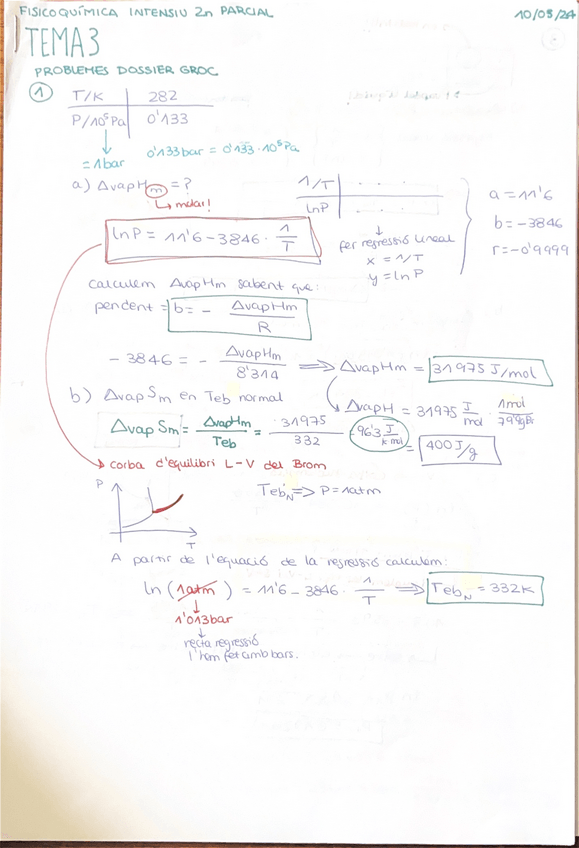 FISICOQUÍMICA INTENSIU 2n PARCIAL 10/05/24
TEMA 3
PROBLEMES DOSSIER GROC
1 T/K 282
P/10⁵Pa 0'133
= 1bar 0'133bar = 0'133·10⁵Pa
a) ΔvapHm = ?
molar!
1/T
lnP
a = 11'6
b = -3846
r = -0'9999
lnP = 11'6 - 3846 · 1/T
fer regressió lineal
x = 1/T
y = lnP
Calculem ΔvapHm sabent que:
pendent = b = - ΔvapHm/R
-3846 = - ΔvapHm/8'314 ⟹ ΔvapHm = 31975 J/mol
b) ΔvapSm en Teb normal
ΔvapH = 31975 J/mol · 1mol/79'9gBr = 400 J/g
ΔvapSm = ΔvapHm/Teb = 31975/332 = 96'3 J/K·mol
corba d'equilibri L-V del Brom
TebN => P = 1atm
P
T
A partir de l'equació de la regressió calculem:
ln (1atm) = 11'6 - 3846 · 1/T ⟹ TebN = 332K
1'013bar
recta regressió
l'hem fet amb bars.